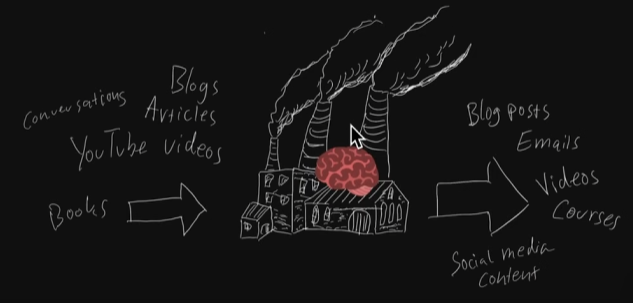 Conversations
Blogs
Articles
YouTube videos
Books
Blog posts
Emails
Videos
Courses
Social media
content